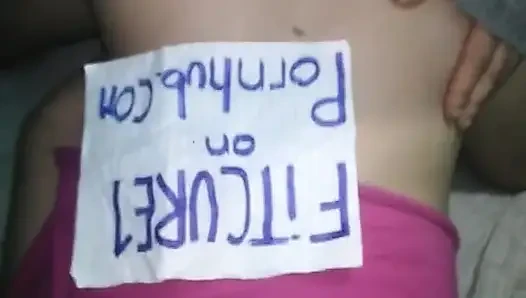 FiTCURE1
on
Pornhub.COM